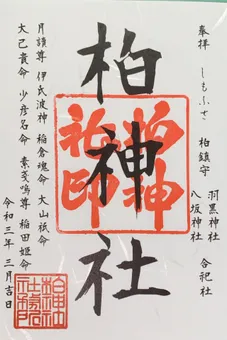 奉拝 しもふさ
柏鎮守
羽黒神社
八坂神社
合祀社
柏神社
柏神
社印
月讀尊 伊氐波神 稲倉魂命 大山祇命
大己貴命 少彦名命 素戔嗚尊 稲田姫命
令和三年三月吉日